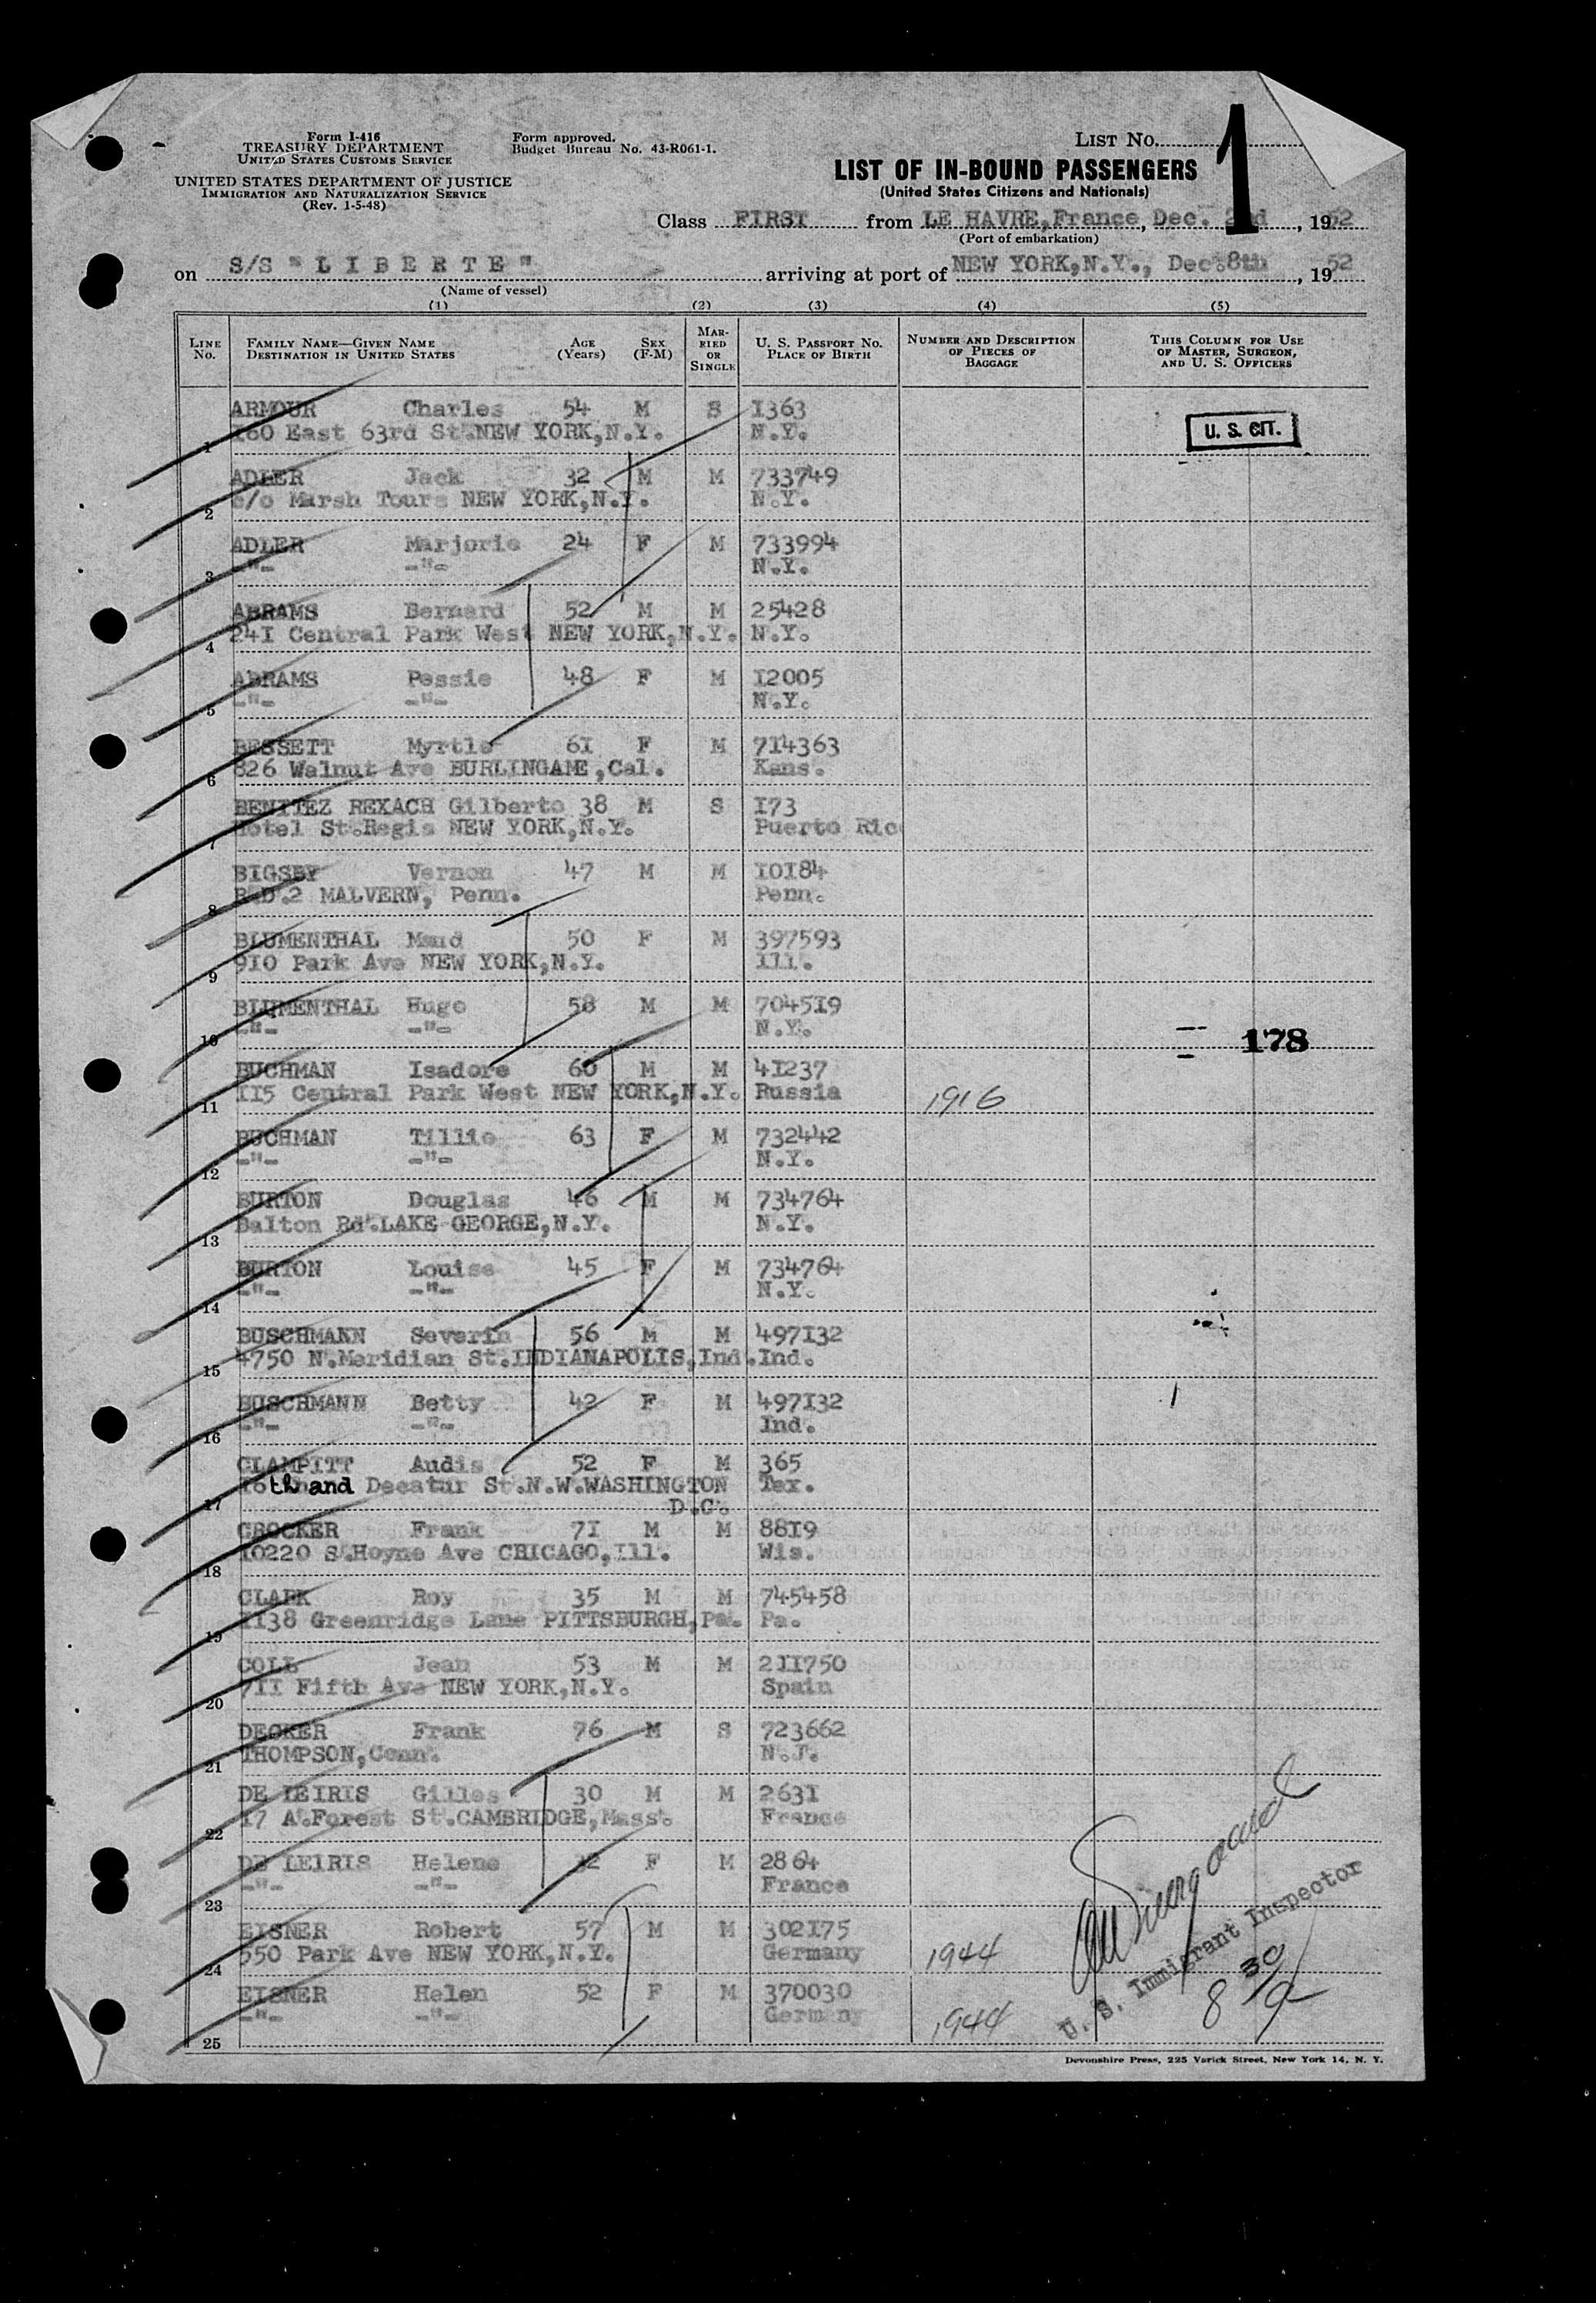 Form I-416
TREASURY DEPARTMENT
UNITED STATES CUSTOMS SERVICE
UNITED STATES DEPARTMENT OF JUSTICE
IMMIGRATION AND NATURALIZATION SERVICE
(Rev. 1-5-48)
Form approved.
Budget Bureau No. 43-R061-1.
LIST No. 1
LIST OF IN-BOUND PASSENGERS
(United States Citizens and Nationals)
Class FIRST from LE HAVRE,France, Dec. 2nd, 1952
(Port of embarkation)
on S/S "LIBERTE" arriving at port of NEW YORK,N.Y., Dec.8th, 1952
(Name of vessel)
(1) (2) (3) (4) (5)
LINE No. FAMILY NAME—GIVEN NAME DESTINATION IN UNITED STATES AGE (Years) SEX (F-M) MARRIED OR SINGLE U. S. PASSPORT NO. PLACE OF BIRTH NUMBER AND DESCRIPTION OF PIECES OF BAGGAGE THIS COLUMN FOR USE OF MASTER, SURGEON, AND U. S. OFFICERS
ARMOUR Charles 54 M S I363
1 160 East 63rd St.NEW YORK,N.Y. N.Y. U. S. CIT.
ADLER Jack 32 M M 733749
2 c/o Marsh Tours NEW YORK,N.Y. N.Y.
ADLER Marjorie 24 F M 733994
3 -"- -"- N.Y.
ABRAMS Bernard 52 M M 25428
4 24I Central Park West NEW YORK,N.Y. N.Y.
ABRAMS Pessie 48 F M I2005
5 -"- -"- N.Y.
BESSETT Myrtle 6I F M 7I4363
6 826 Walnut Ave BURLINGAME,Cal. Kans.
BENITEZ REXACH Gilberto 38 M S I73
7 Hotel St.Regis NEW YORK,N.Y. Puerto Ric
BIGSBY Vernon 47 M M I0I84
8 R.D.2 MALVERN, Penn. Penn.
BLUMENTHAL Maud 50 F M 397593
9 9I0 Park Ave NEW YORK,N.Y. Ill.
BLUMENTHAL Hugo 58 M M 7045I9
10 -"- -"- N.Y. 178
BUCHMAN Isadore 60 M M 4I237
11 II5 Central Park West NEW YORK,N.Y. Russia 1916
BUCHMAN Tillie 63 F M 732442
12 -"- -"- N.Y.
BURTON Douglas 46 M M 734764
13 Dalton Rd.LAKE GEORGE,N.Y. N.Y.
BURTON Louise 45 F M 734764
14 -"- -"- N.Y.
BUSCHMANN Severin 56 M M 497I32
15 4750 N.Meridian St.INDIANAPOLIS,Ind. Ind.
BUSCHMANN Betty 42 F M 497I32
16 -"- -"- Ind.
CLAMPITT Audis 52 F M 365
17 16th and Decatur St.N.W.WASHINGTON Tex.
D.C.
CROCKER Frank 7I M M 88I9
18 I0220 S.Hoyne Ave CHICAGO,Ill. Wis.
CLARK Roy 35 M M 745458
19 II38 Greenridge Lane PITTSBURGH,Pa. Pa.
COLL Jean 53 M M 2II750
20 7II Fifth Ave NEW YORK,N.Y. Spain
DECKER Frank 76 M S 723662
21 THOMPSON,Conn. N.J.
DE LEIRIS Gilles 30 M M 263I
22 I7 A.Forest St.CAMBRIDGE,Mass. France
DE LEIRIS Helene 32 F M 2864
23 -"- -"- France
EISNER Robert 57 M M 302I75
24 550 Park Ave NEW YORK,N.Y. Germany 1944
EISNER Helen 52 F M 370030
25 -"- -"- Germany 1944
U. S. Immigrant Inspector
8 30
Devonshire Press, 225 Varick Street, New York 14, N. Y.